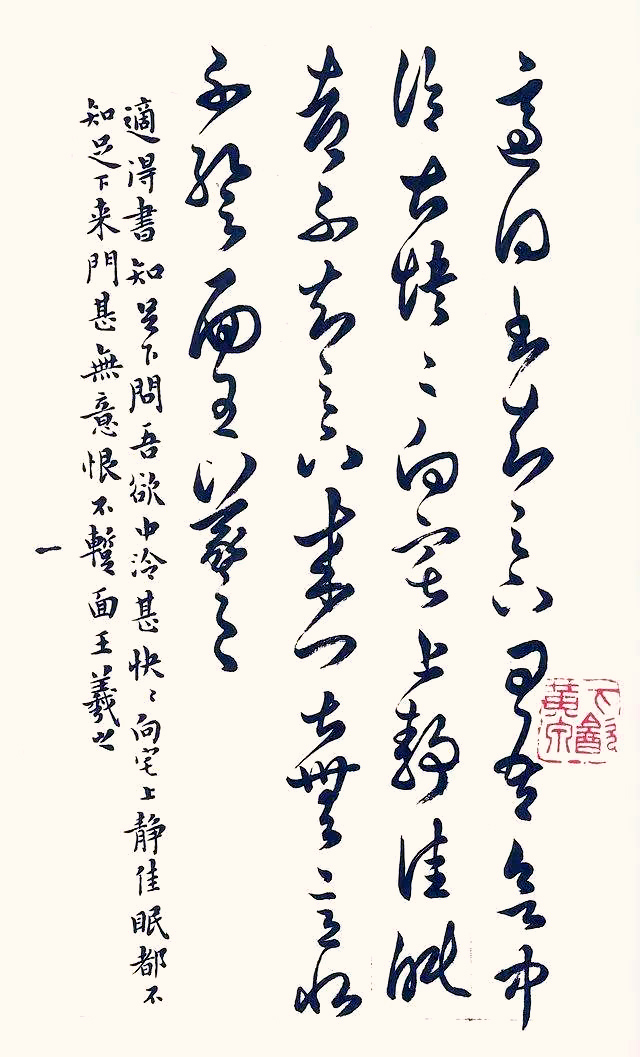 適得書知足下問吾欲中
泠甚快〻向宅上静佳眠
都不知足下来門甚無意恨
不暫面王羲之
適得書知足下問吾欲中泠甚快〻向宅上静佳眠都不
知足下来門甚無意恨不暫面王羲之
一